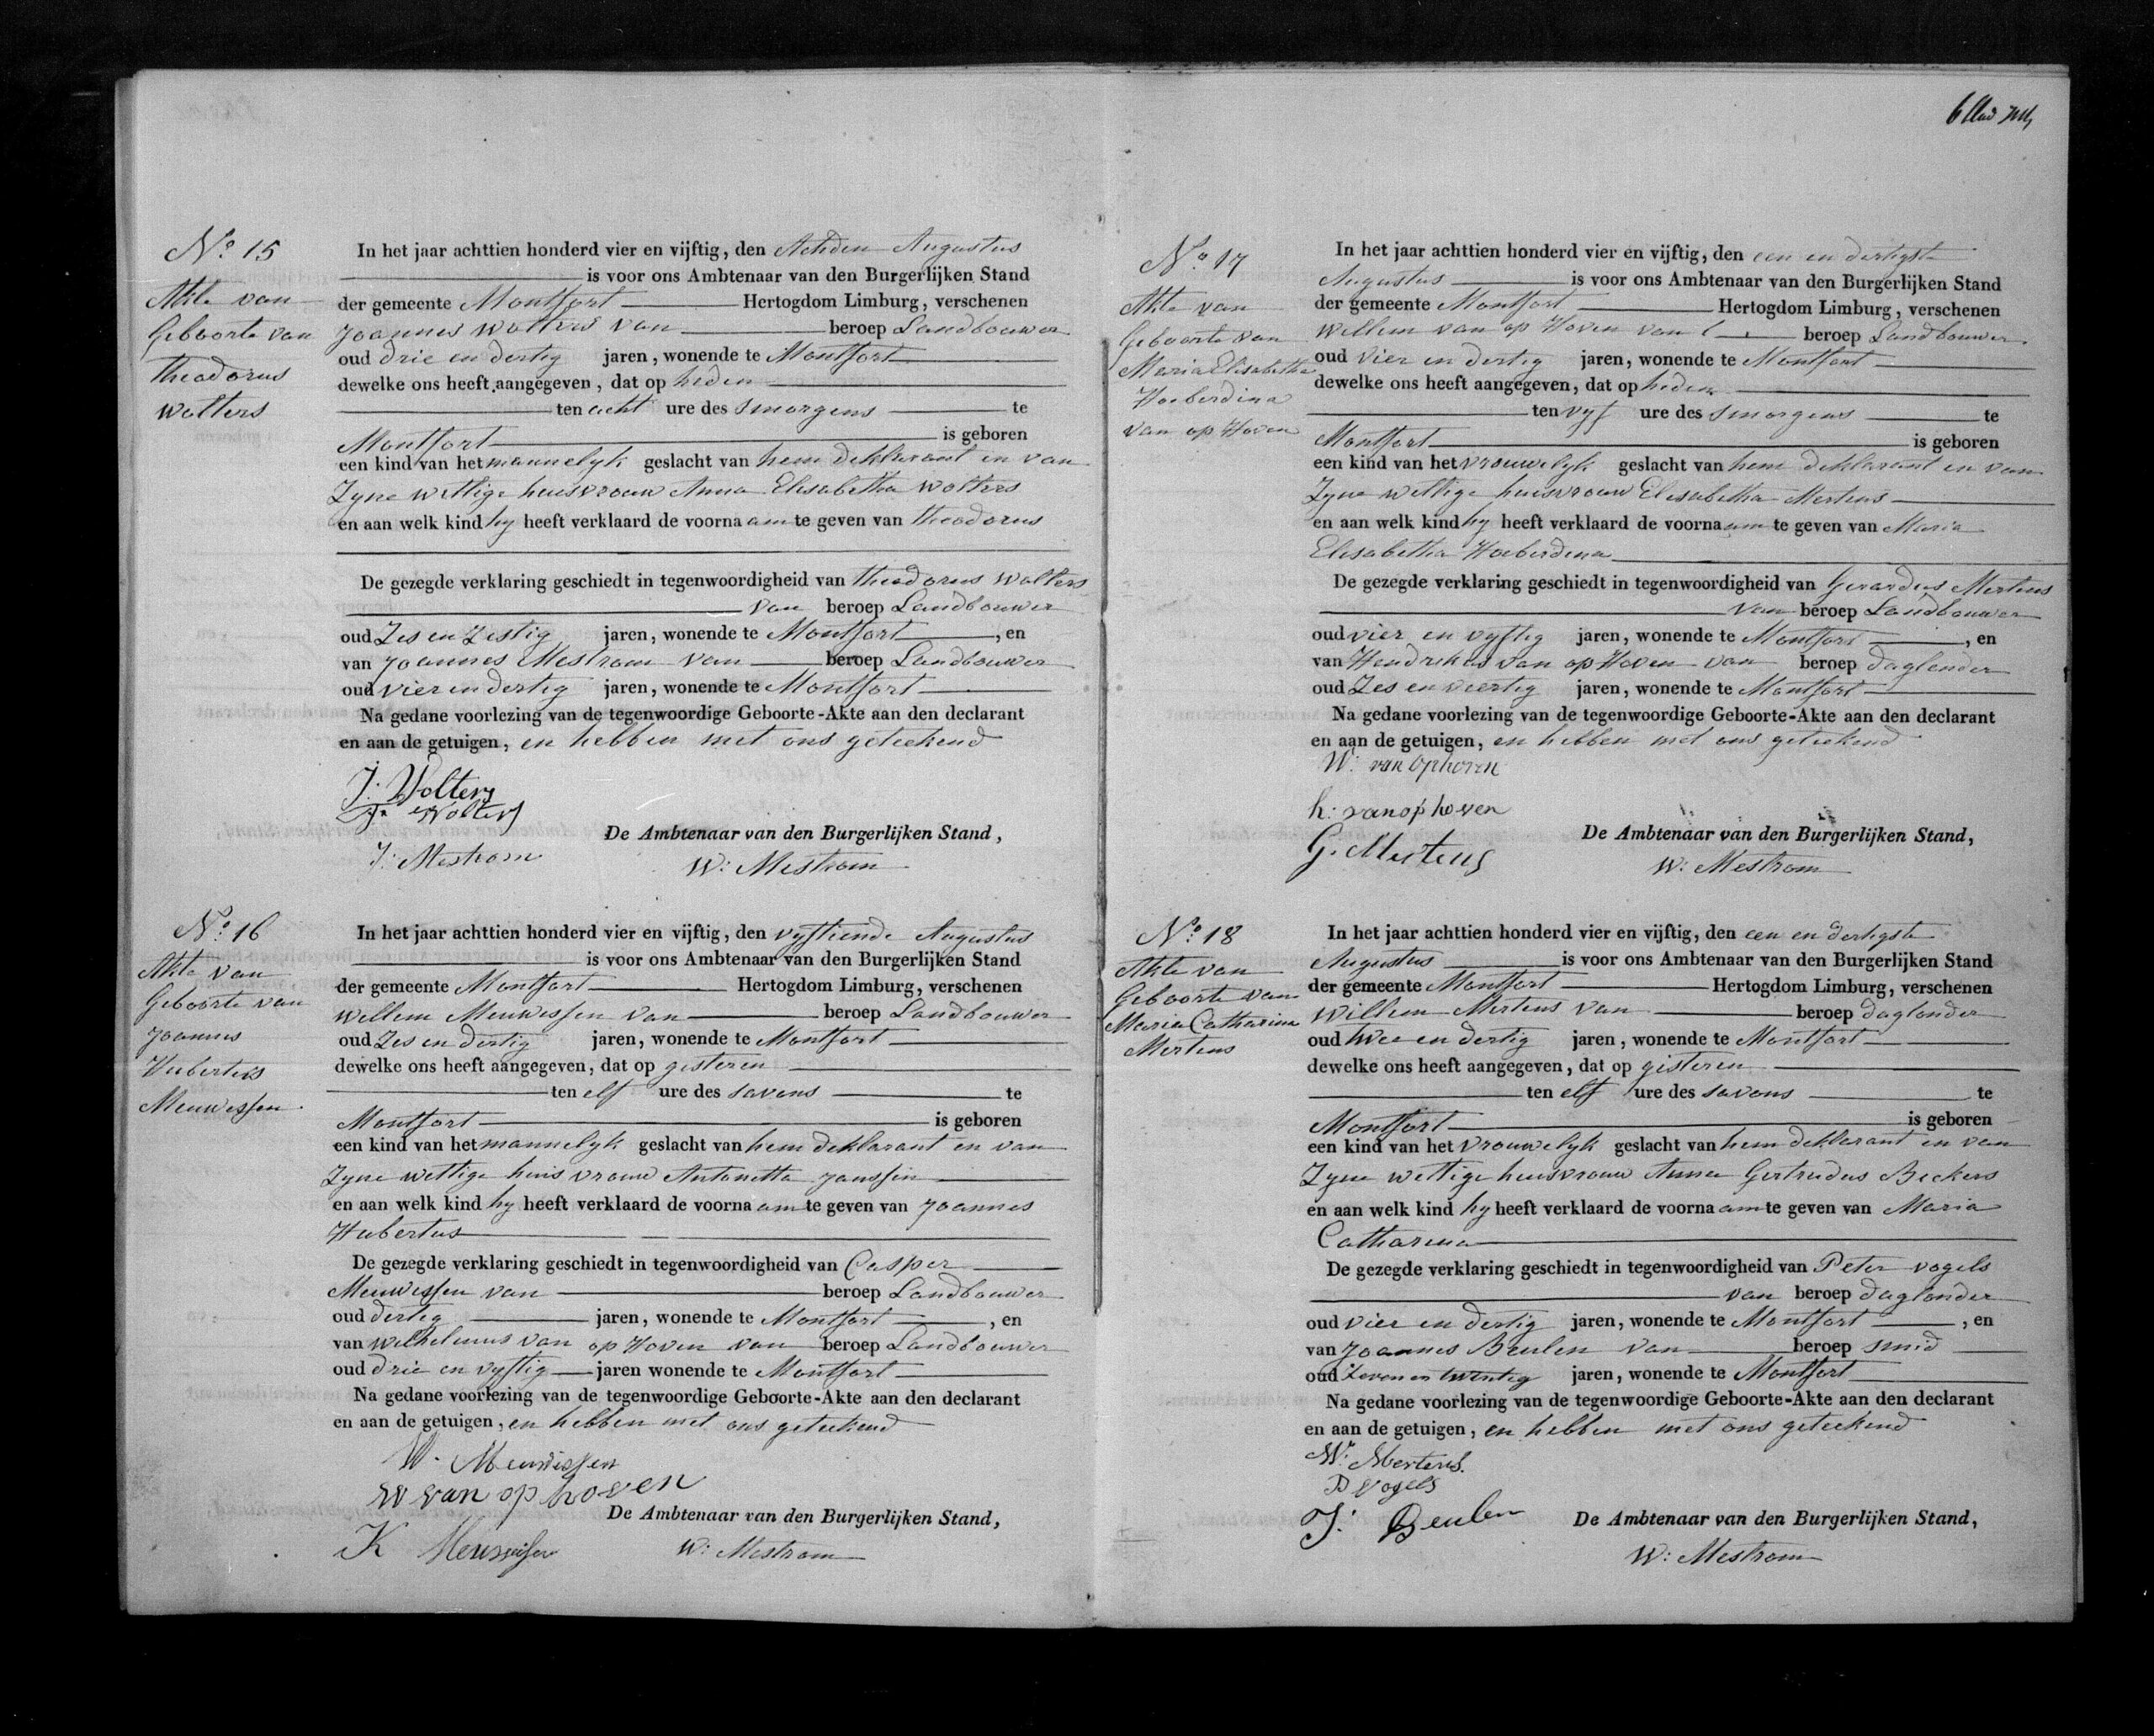 6 Blad
No 15
Akte van
Geboorte van
Theodorus
Wolters
In het jaar achttien honderd vier en vijftig, den Achsten Augustus
is voor ons Ambtenaar van den Burgerlijken Stand
der gemeente Montfort Hertogdom Limburg, verschenen
Joannes Wolters van beroep Landbouwer
oud drie en dertig jaren, wonende te Montfort
dewelke ons heeft aangegeven, dat op heden
ten acht ure des smorgens te
Montfort is geboren
een kind van het mannelyk geslacht van hem deklarant en van
Zyne wettige huisvrouw Anna Elisabetha Wolters
en aan welk kind hy heeft verklaard de voorna am te geven van Theodorus
De gezegde verklaring geschiedt in tegenwoordigheid van Theodorus Wolters
van beroep Landbouwer
oud Zes en Zestig jaren, wonende te Montfort, en
van Joannes Mestrom van beroep Landbouwer
oud vier en dertig jaren, wonende te Montfort
Na gedane voorlezing van de tegenwoordige Geboorte-Akte aan den declarant
en aan de getuigen, en hebben met ons geteekend
J: Wolters
Wolters
J: Mestrom
De Ambtenaar van den Burgerlijken Stand,
W: Mestrom
No 16
Akte van
Geboorte van
Joannes
Hubertus
Meuwissen
In het jaar achttien honderd vier en vijftig, den vyftiende Augustus
is voor ons Ambtenaar van den Burgerlijken Stand
der gemeente Montfort Hertogdom Limburg, verschenen
Willem Meuwissen van beroep Landbouwer
oud Zes en dertig jaren, wonende te Montfort
dewelke ons heeft aangegeven, dat op gisteren
ten elf ure des savons te
Montfort is geboren
een kind van het mannelyk geslacht van hem deklarant en van
Zyne wettige huis vrouw Antonetta Janssen
en aan welk kind hy heeft verklaard de voorna am te geven van Joannes
Hubertus
De gezegde verklaring geschiedt in tegenwoordigheid van Casper
Meuwissen van beroep Landbouwer
oud dertig jaren, wonende te Montfort, en
van Wilhelmus van op Hoven van beroep Landbouwer
oud drie en vyftig jaren wonende te Montfort
Na gedane voorlezing van de tegenwoordige Geboorte-Akte aan den declarant
en aan de getuigen, en hebben met ons geteekend
W. Meuwissen
W van op hoven
K Meuwissen
De Ambtenaar van den Burgerlijken Stand,
W: Mestrom
No 17
Akte van
Geboorte van
Maria Elisabetha
Hoeberdina
van op Hoven
In het jaar achttien honderd vier en vijftig, den een en dertigste
Augustus is voor ons Ambtenaar van den Burgerlijken Stand
der gemeente Montfort Hertogdom Limburg, verschenen
Willem van op Hoven van beroep Landbouwer
oud vier en dertig jaren, wonende te Montfort
dewelke ons heeft aangegeven, dat op heden
ten vyf ure des smorgens te
Montfort is geboren
een kind van het vrouwelyk geslacht van hem deklarant en van
Zyne wettige huisvrouw Elisabetha Mertens
en aan welk kind hy heeft verklaard de voorna am te geven van Maria
Elisabetha Hoeberdina
De gezegde verklaring geschiedt in tegenwoordigheid van Gerardus Mertens
van beroep Landbouwer
oud vier en vyftig jaren, wonende te Montfort, en
van Hendrikus van op Hoven van beroep daglonder
oud Zes en veertig jaren, wonende te Montfort
Na gedane voorlezing van de tegenwoordige Geboorte-Akte aan den declarant
en aan de getuigen, en hebben met ons geteekend
W: van Ophoven
h: van op hoven
G. Mertens
De Ambtenaar van den Burgerlijken Stand,
W: Mestrom
No 18
Akte van
Geboorte van
Maria Catharina
Mertens
In het jaar achttien honderd vier en vijftig, den een en dertigste
Augustus is voor ons Ambtenaar van den Burgerlijken Stand
der gemeente Montfort Hertogdom Limburg, verschenen
Willem Mertens van beroep daglonder
oud twee en dertig jaren, wonende te Montfort
dewelke ons heeft aangegeven, dat op gisteren
ten elf ure des savons te
Montfort is geboren
een kind van het vrouwelyk geslacht van hem deklarant en van
Zyne wettige huisvrouw Anna Gertrudus Beckers
en aan welk kind hy heeft verklaard de voorna am te geven van Maria
Catharina
De gezegde verklaring geschiedt in tegenwoordigheid van Peter Vogels
van beroep daglonder
oud vier en dertig jaren, wonende te Montfort, en
van Joannes Beulen van beroep smid
oud Zeven en twintig jaren, wonende te Montfort
Na gedane voorlezing van de tegenwoordige Geboorte-Akte aan den declarant
en aan de getuigen, en hebben met ons geteekend
W: Mertens.
P Vogels
J: Beulen
De Ambtenaar van den Burgerlijken Stand,
W: Mestrom